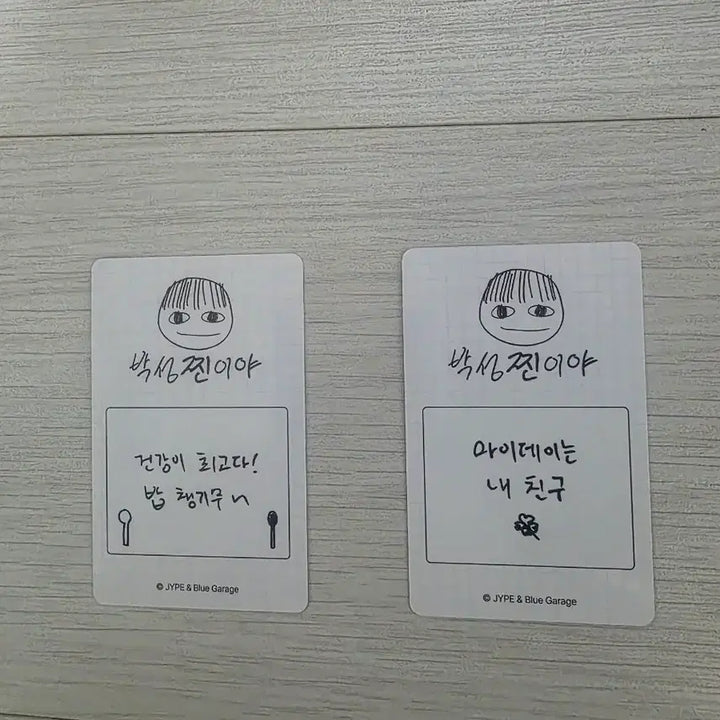 박성찐이야
건강이 최고다!
밥 챙기무ㄴ
© JYPE & Blue Garage
박성찐이야
마이데이는
내 친구
© JYPE & Blue Garage